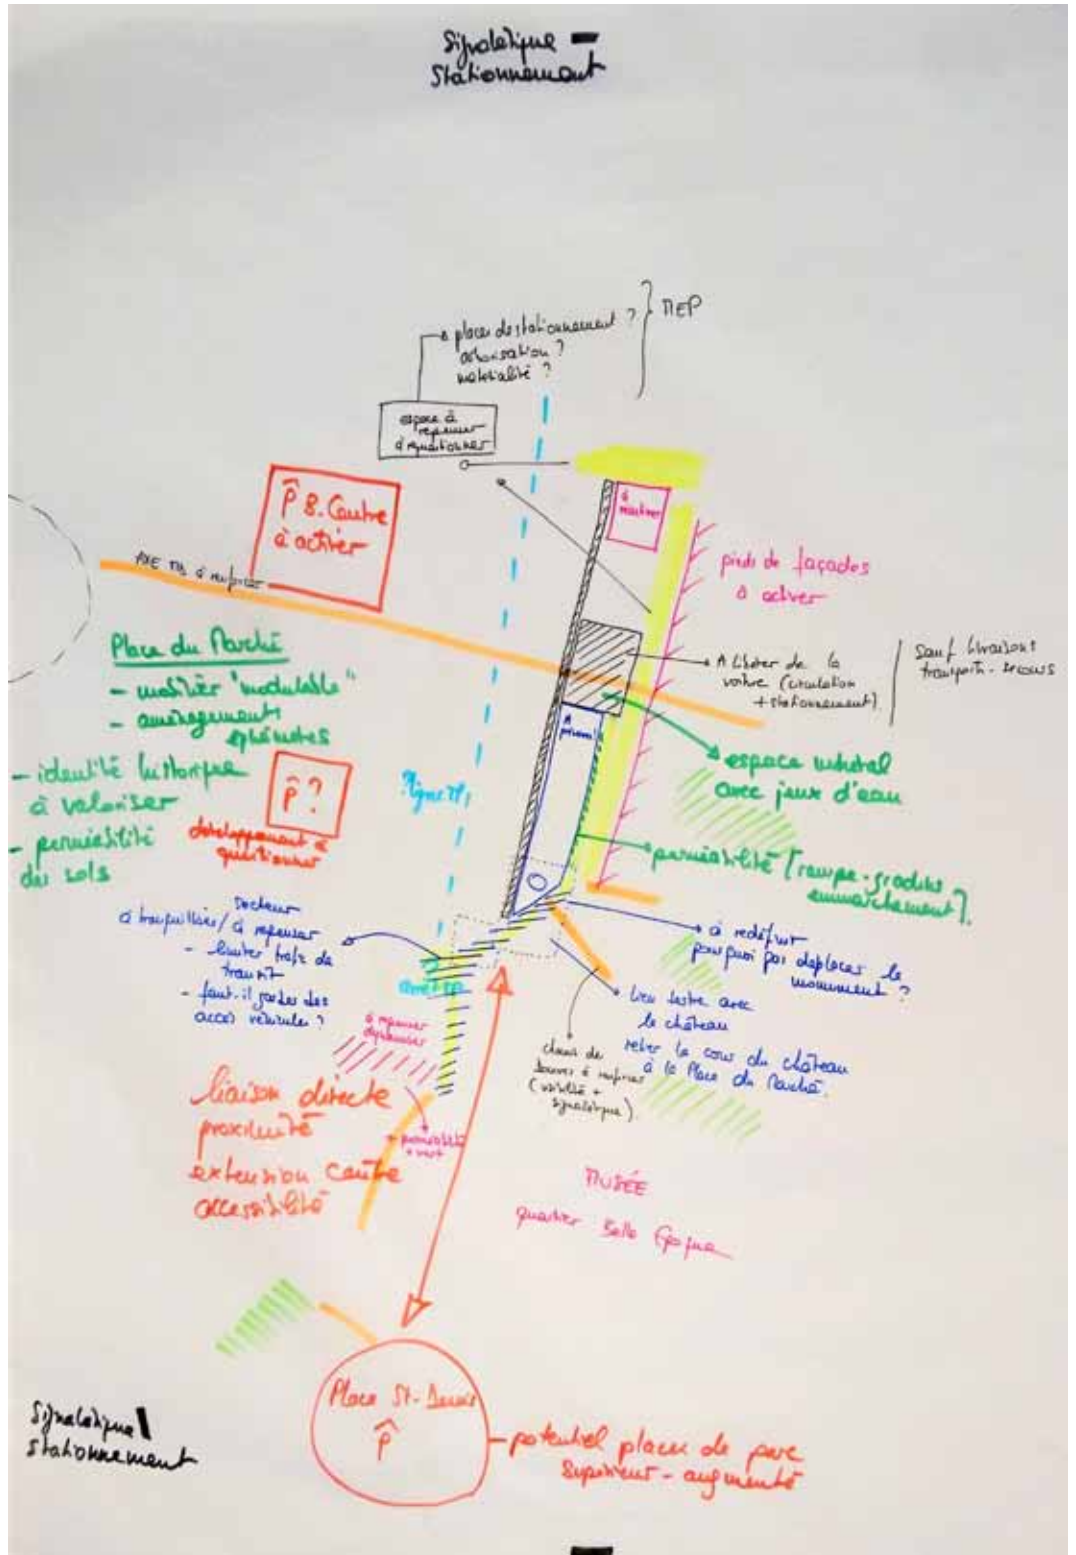 Signalétique
Stationnement
places de stationnement ?
arborisation ?
matérialité ?
MEP
espace à
repenser
à questionner
P B. Centre
à activer
à
réactiver
AXE TM à renforcer
pieds de façades
à activer
Place du Marché
- mobilier "modulable"
- aménagements
éphémères
- identité historique
à valoriser
- perméabilité
des sols
A libérer de la
voiture (circulation
+ stationnement).
sauf livraisons
transports - secours
espace minéral
avec jeux d'eau
P ?
développement à
questionner
perméabilité (rampe - gradins
emmarchement).
secteur
à tranquilliser / à repenser
- limiter trafic de
transit
- faut-il garder des
accès véhicules ?
à redéfinir
pourquoi pas déplacer le
monument ?
lien fort avec
le château
relier la cour du château
à la Place du Marché.
à repenser
dynamiser
à renforcer
(visibilité +
signalétique)
liaison directe
proximité
extension centre
accessibilité
perméabilité
+ vert
MUSÉE
quartier Belle Epoque
Place St-Denis
P
potentiel places de parc
supérieur - augmenté
Signalétique
Stationnement